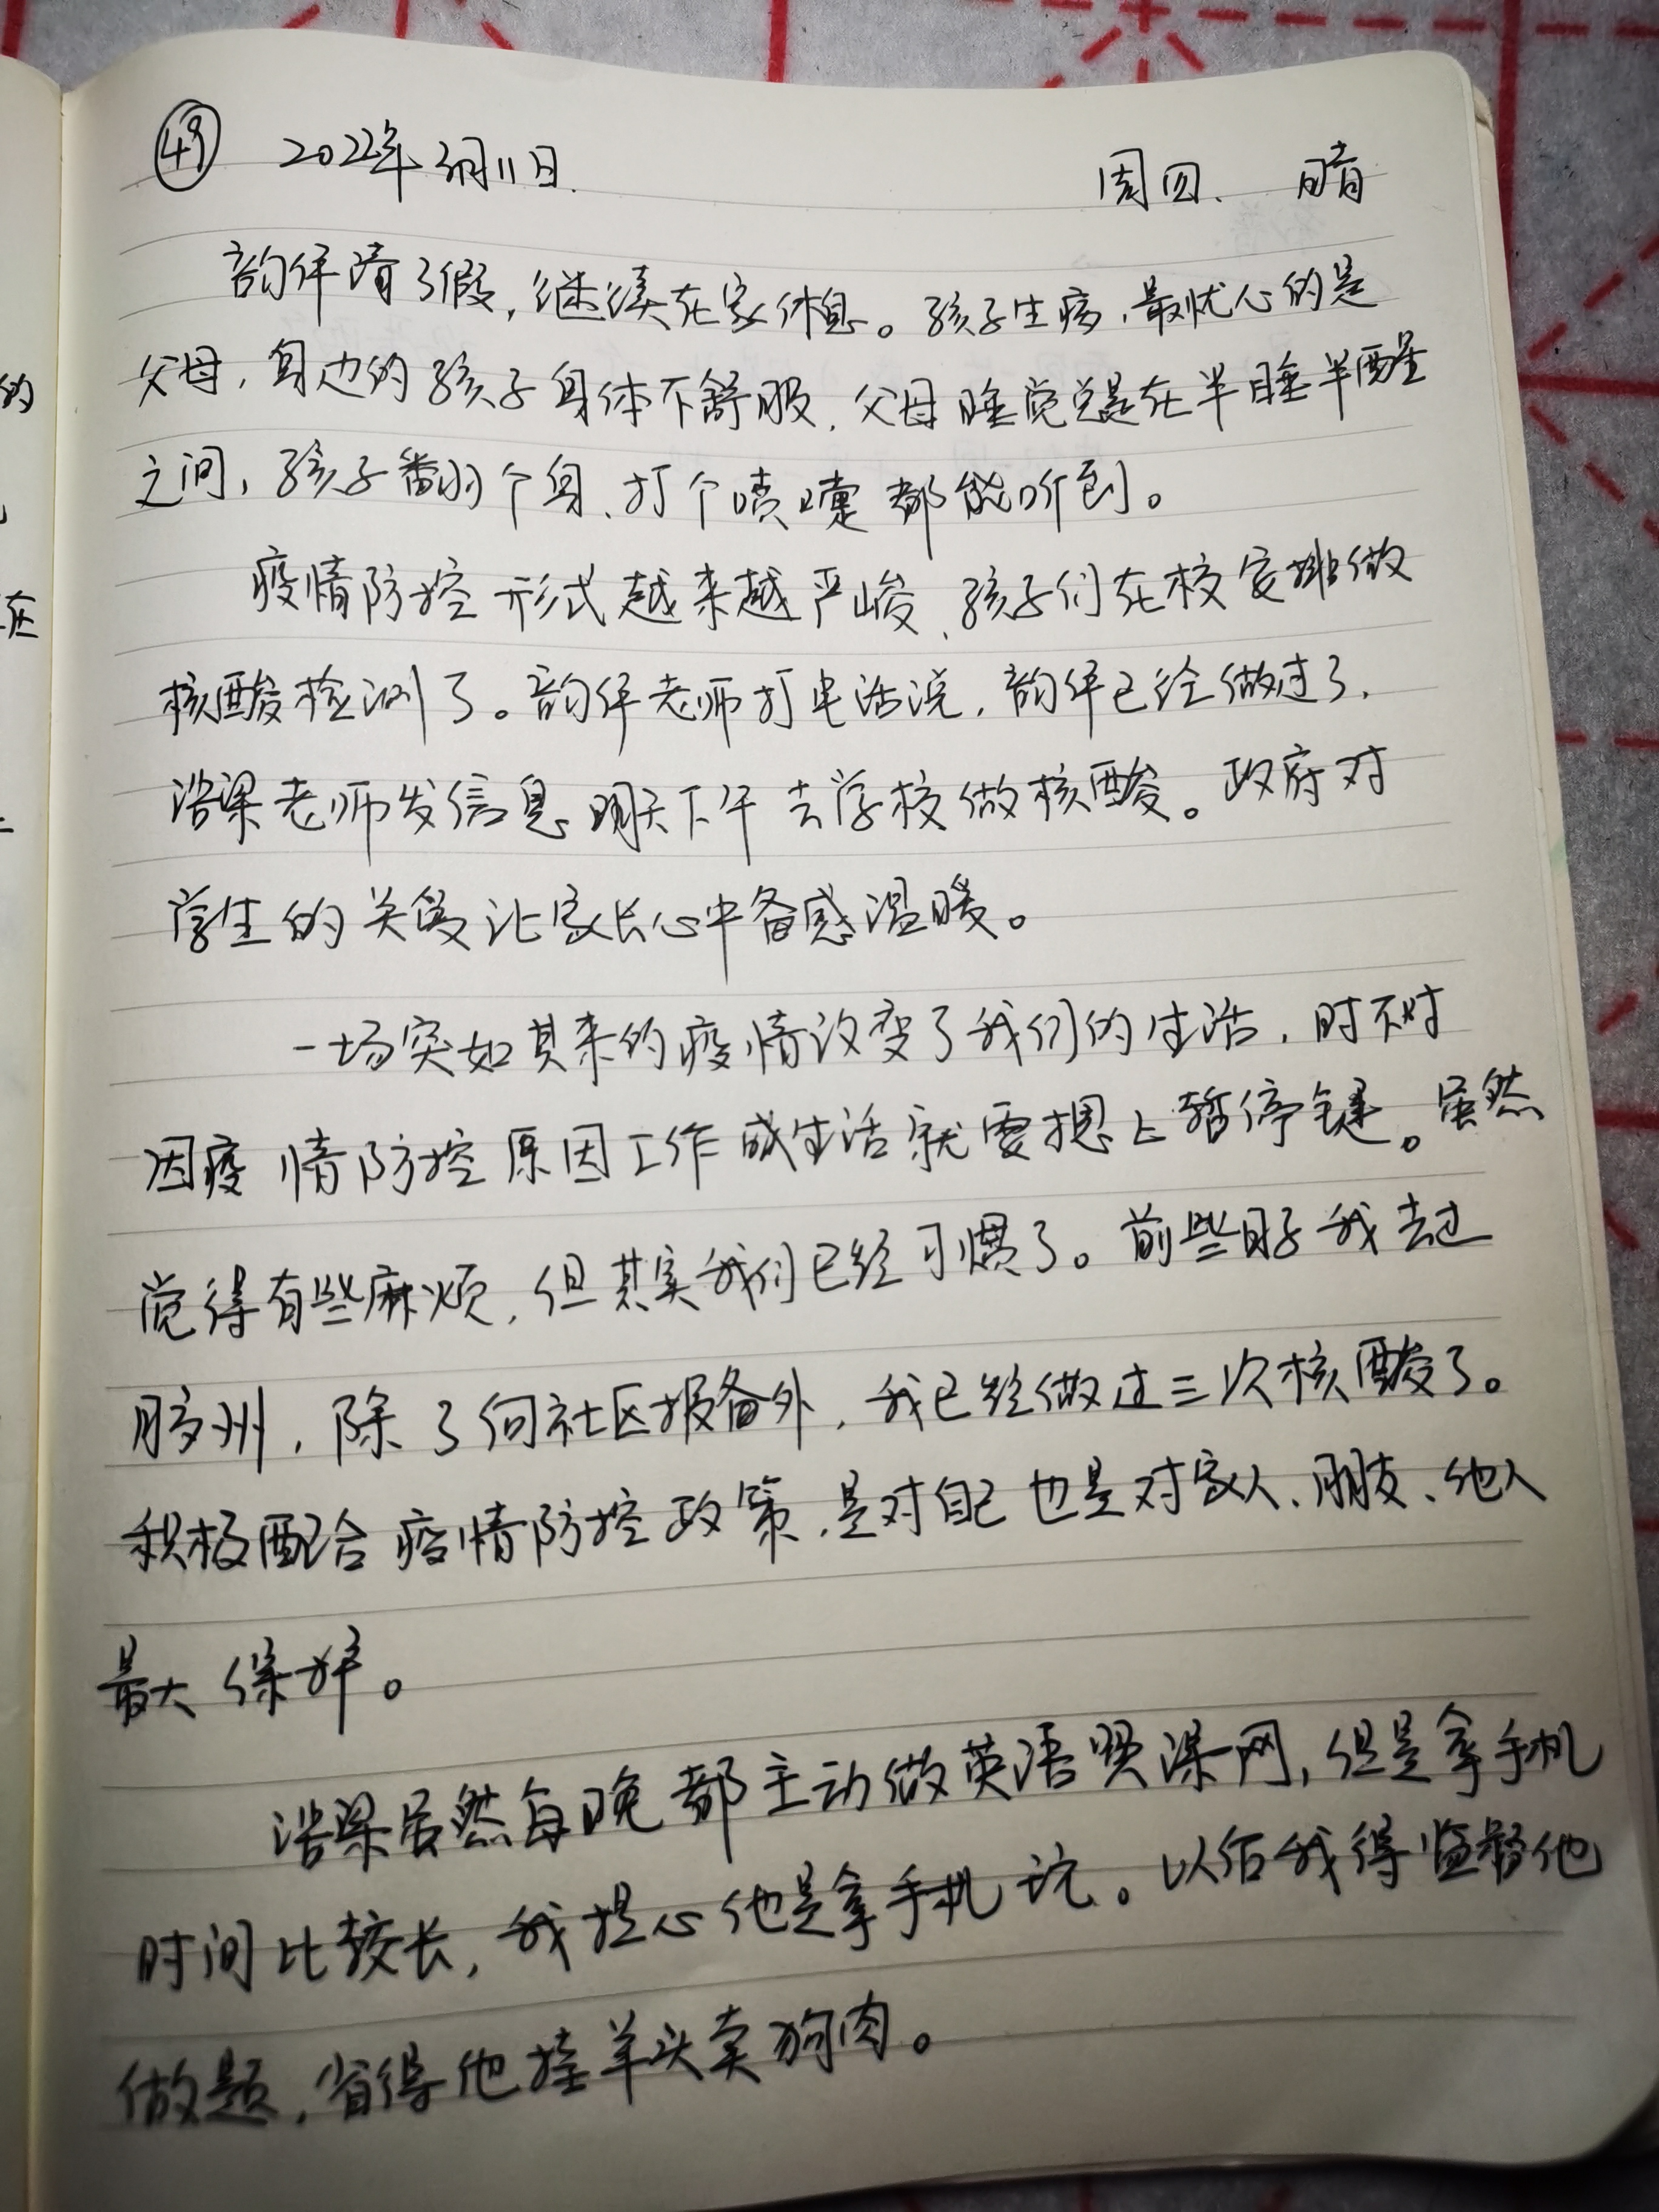 49 2022年3月11日. 周四、 晴
韵伴请了假,继续在家休息。孩子生病,最忧心的是
父母,身边的孩子身体不舒服,父母睡觉总是在半睡半醒
之间,孩子翻个身、打个喷嚏都能听到。
疫情防控形式越来越严峻、孩子们在校安排做
核酸检测了。韵伴老师打电话说,韵伴已经做过了,
浩梁老师发信息明天下午去学校做核酸。政府对
学生的关爱让家长心中备感温暖。
一场突如其来的疫情改变了我们的生活,时不时
因疫情防控原因工作或生活就要摁上暂停键。虽然
觉得有些麻烦,但其实我们已经习惯了。前些日子我去过
胶州,除了向社区报备外,我已经做过三次核酸了。
积极配合疫情防控政策,是对自己也是对家人、朋友、他人
最大保护。
浩梁虽然每晚都主动做英语课网,但是拿手机
时间比较长,我担心他是拿手机玩。以后我得监督他
做题,省得他挂羊头卖狗肉。
的
在